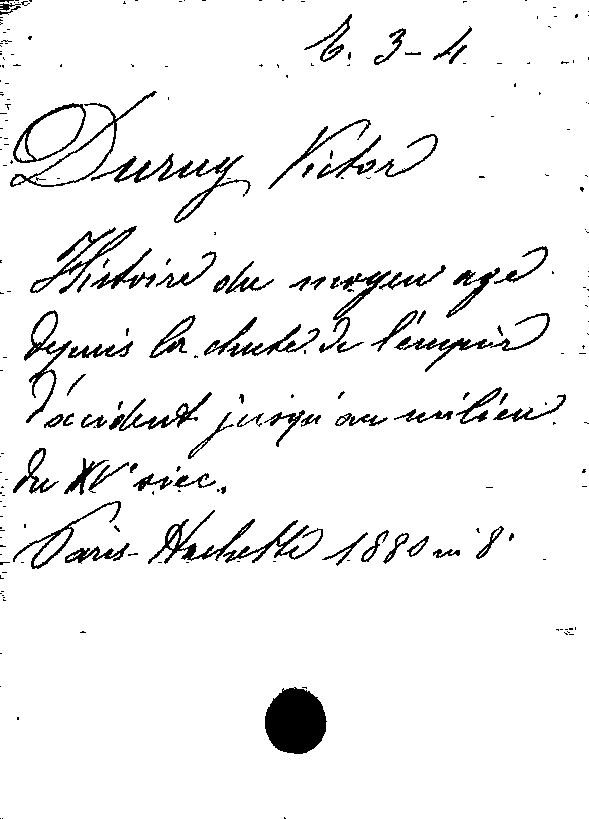 E. 3-4
Duruy Victor
Histoire du moyen age
depuis la chute de l'empire
d'occident jusqu'au milieu
du XVe siec.
Paris-Hachette 1880 in 8°